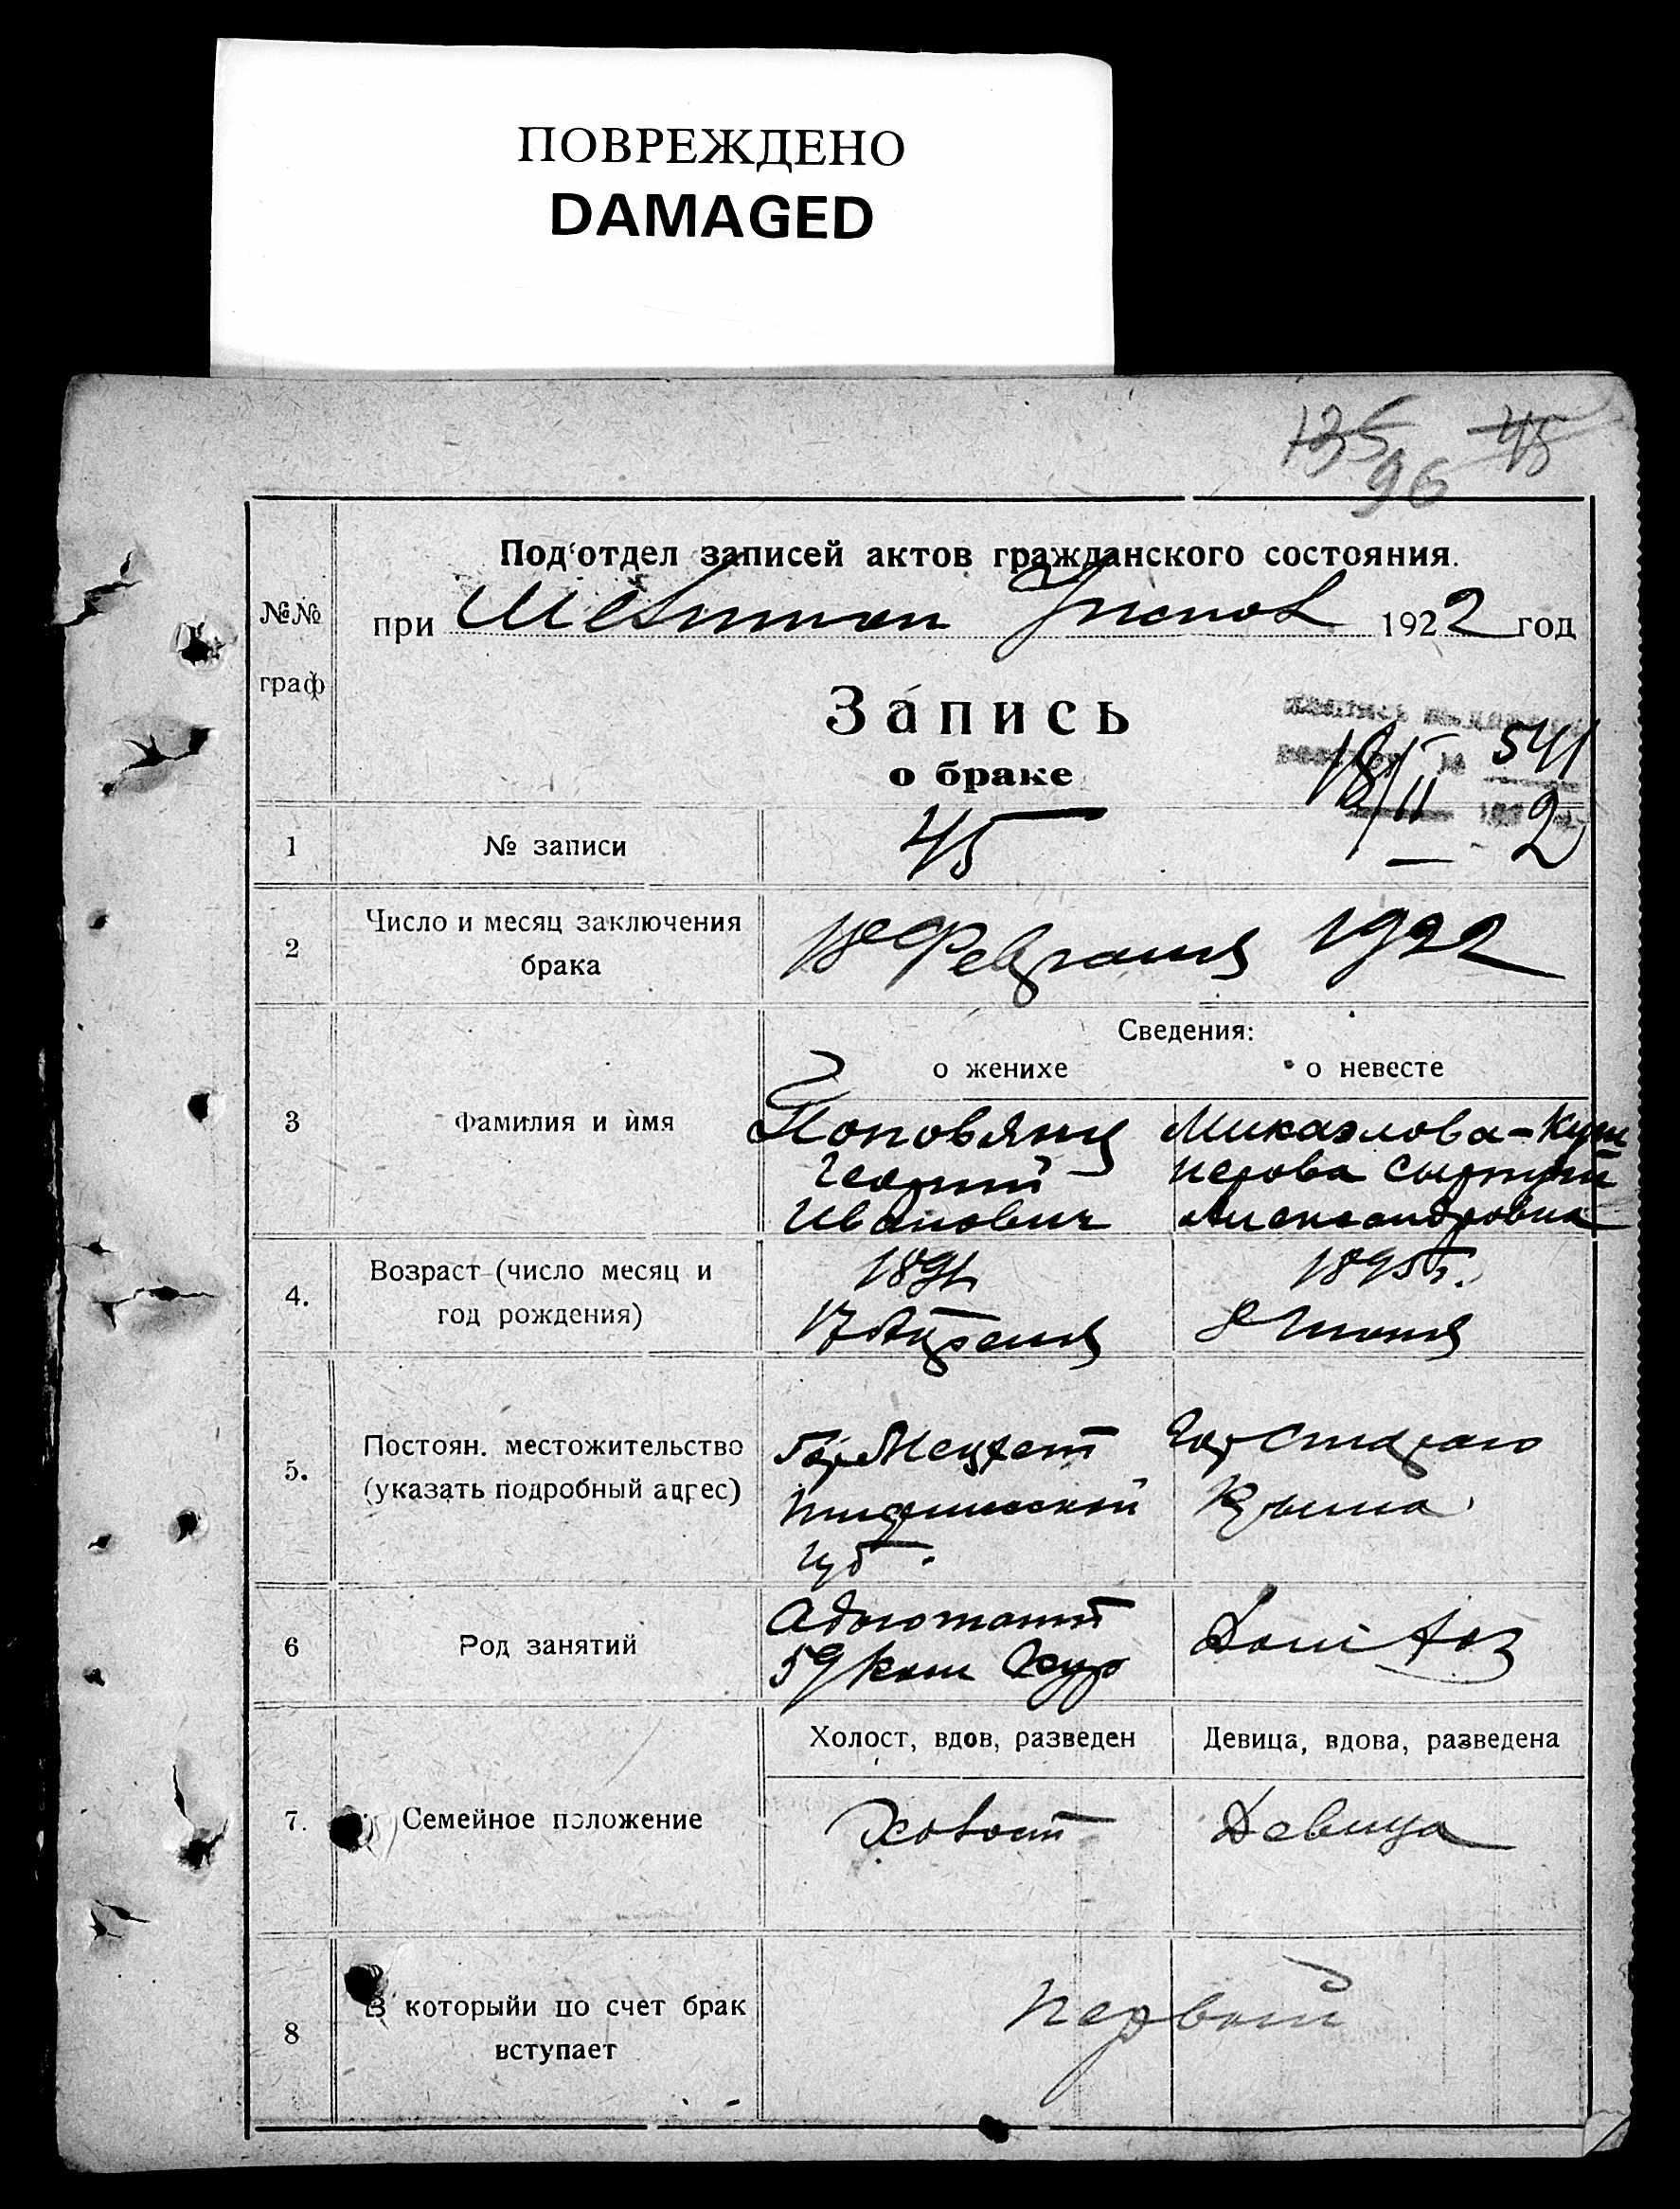 ПОВРЕЖДЕНО
DAMAGED
135 45
96
Под'отдел записей актов гражданского состояния.
№№ граф
при 1922 год
Запись
о браке
541
18/II 2
1 № записи 45
2 Число и месяц заключения брака 18 Февраля 1922
Сведения:
о женихе о невесте
3 Фамилия и имя
Поповянц Микаэлова-
Георгий
Иванович Александровна
4. Возраст (число месяц и год рождения)
1895 г.
17 Апреля 8 Июня
5. Постоян. местожительство (указать подробный адрес)
Гор.
Тифлисской Крыма
губ.
6 Род занятий
Адъютант Дом хоз
59
Холост, вдов, разведен Девица, вдова, разведена
7. Семейное положение Холост Девица
8 В которыйи по счет брак вступает первый